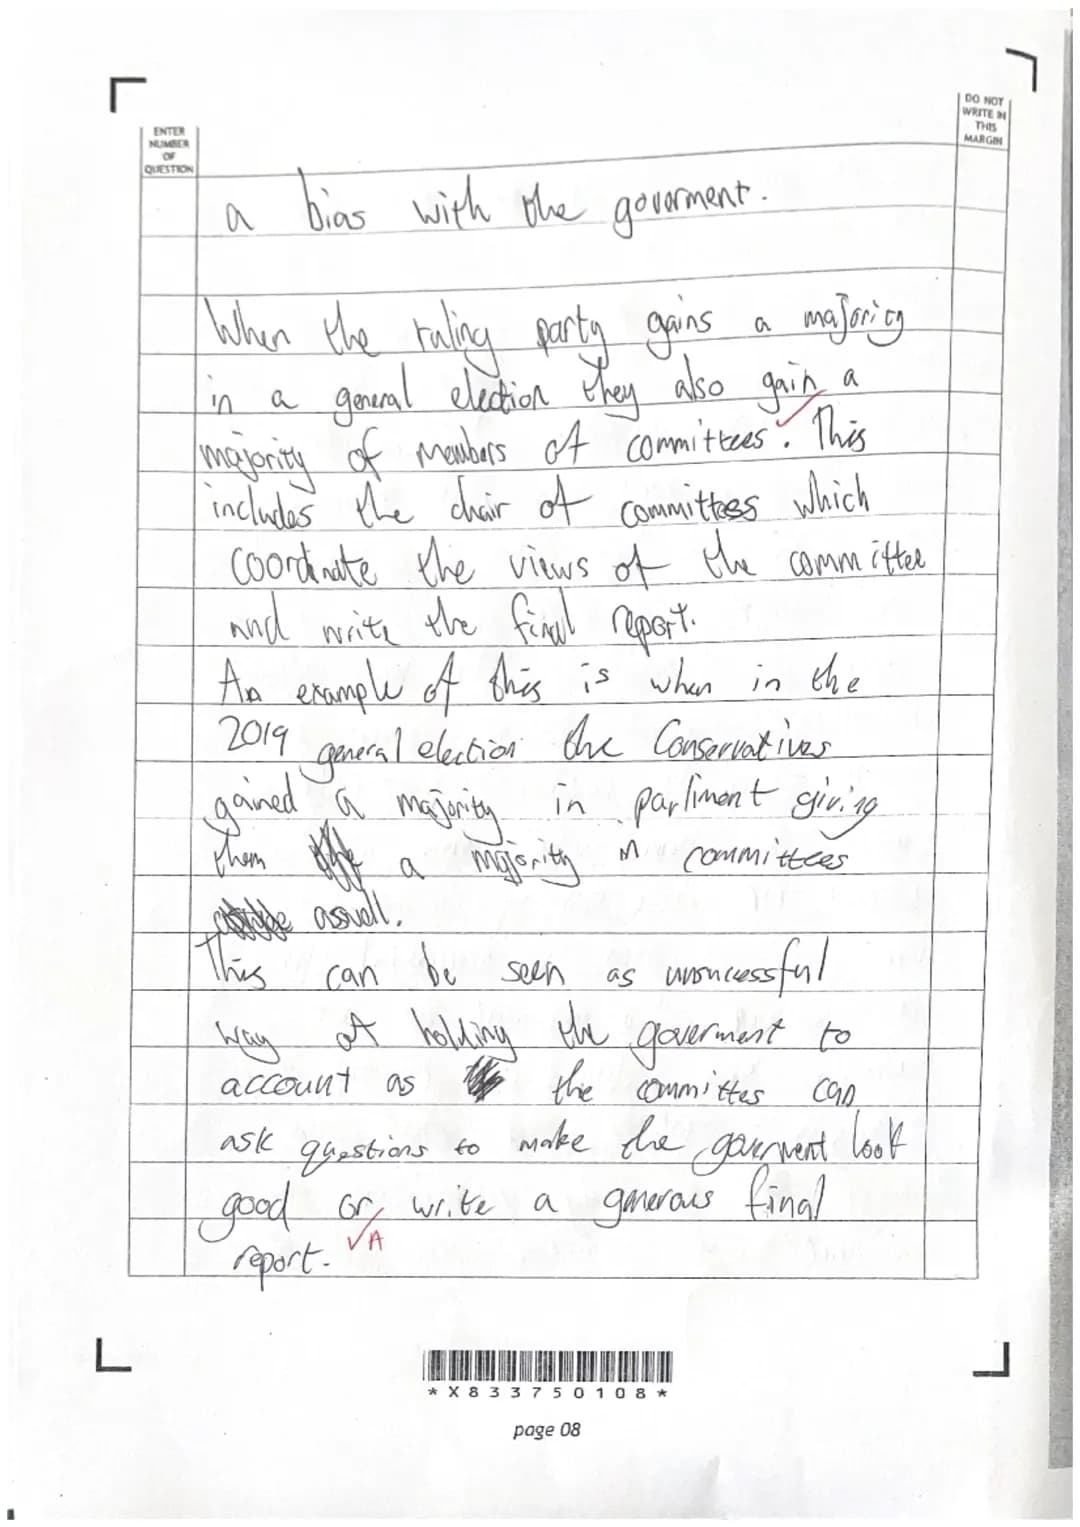 DO NOT
WRITE IN
THIS
MARGIN
ENTER
NUMBER
OF
QUESTION
a bias with the goverment.
When the ruling party gains a majority
in a general election they also gain a
majority of members of committees. This
includes the chair of committees which
coordinate the views of the committee
and write the final report.
An example of this is when in the
2019 general election the Conservatives
gained a majority in parliment giving
them a majority in committees
aswell.
This can be seen as unsucessful
way of holding the goverment to
account as the committes can
ask questions to make the goverment look
good or write a generous final
✓A
report.
* X 8 3 3 7 5 0 1 0 8 *
page 08